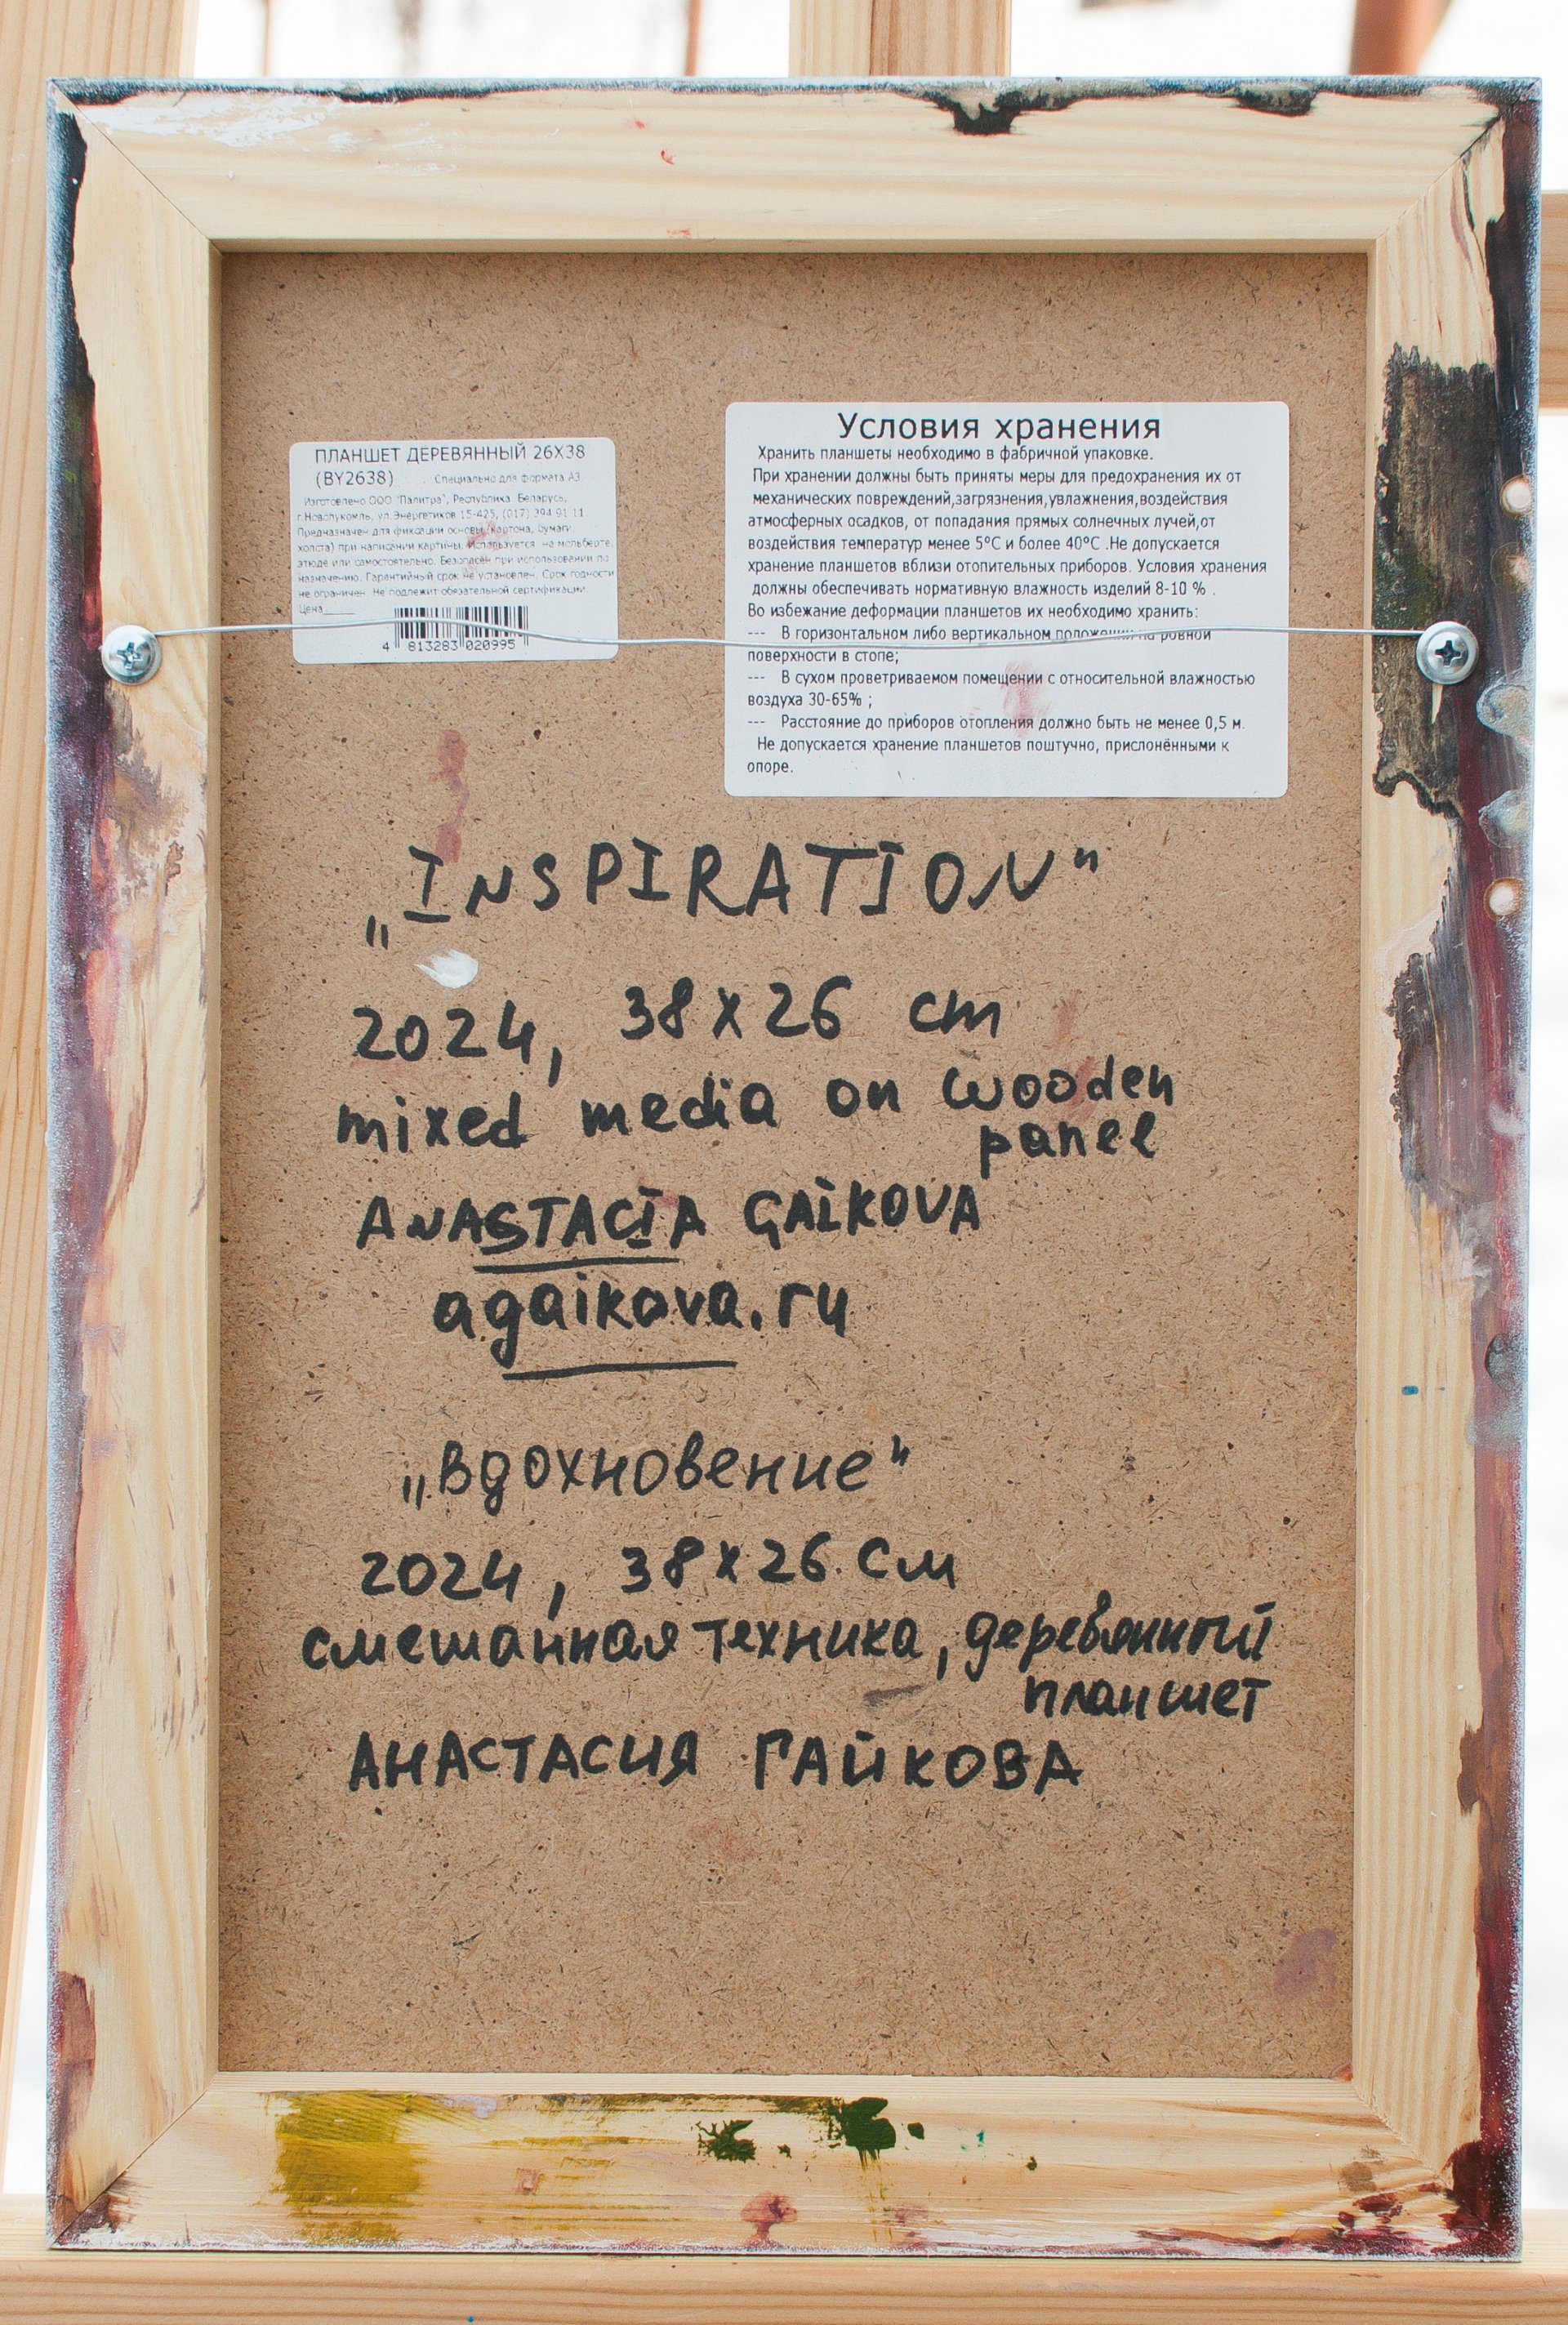 ПЛАНШЕТ ДЕРЕВЯННЫЙ 26X38
(BY2638) Специально для формата А3
Изготовлено ООО "Палитра", Республика Беларусь,
г.Новолукомль, ул.Энергетиков 15-425, (017) 394 91 11
Предназначен для фиксации основы (картона, бумаги,
холста) при написании картины. Используется на мольберте,
этюде или самостоятельно. Безопасен при использовании по
назначению. Гарантийный срок не установлен. Срок годности
не ограничен. Не подлежит обязательной сертификации.
Цена_____
4 813283 020995
Условия хранения
Хранить планшеты необходимо в фабричной упаковке.
При хранении должны быть приняты меры для предохранения их от
механических повреждений,загрязнения,увлажнения,воздействия
атмосферных осадков, от попадания прямых солнечных лучей,от
воздействия температур менее 5°С и более 40°С .Не допускается
хранение планшетов вблизи отопительных приборов. Условия хранения
должны обеспечивать нормативную влажность изделий 8-10 % .
Во избежание деформации планшетов их необходимо хранить:
--- В горизонтальном либо вертикальном положении на ровной
поверхности в стопе;
--- В сухом проветриваемом помещении с относительной влажностью
воздуха 30-65% ;
--- Расстояние до приборов отопления должно быть не менее 0,5 м.
Не допускается хранение планшетов поштучно, прислонёнными к
опоре.
„INSPIRATION"
2024, 38x26 cm
mixed media on wooden
panel
ANASTACIA GAIKOVA
agaikova.ru
„Вдохновение"
2024, 38x26 см
смешанная техника, деревянный
планшет
АНАСТАСИЯ ГАЙКОВА